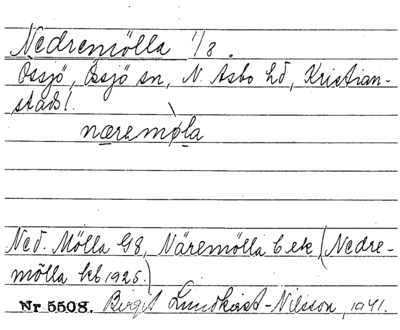 Nedremölla 1/8.
Össjö, Össjö sn, N. Åsbo hd, Kristian-
stads l.
næremø̀la
Ned. Mölla G8, Näremölla b. ek. (Nedre-
mölla kb 1925.)
Nr 5508. Birgit Lundkvist-Nilsson, 1941.